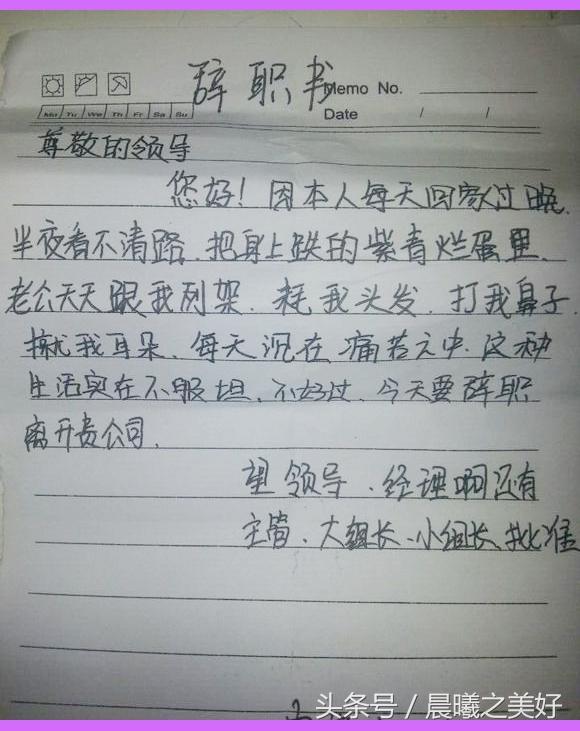 辞职书
Memo No.
Mo Tu We Th Fr Sa Su
Date / /
尊敬的领导
您好！因本人每天回家过晚.
半夜看不清路.把身上跌的紫青烂蛋里.
老公天天跟我列架.耗我头发.打我鼻子.
揪我耳朵.每天沉在痛苦之中.这种
生活实在不服坦.不好过.今天要辞职
离开贵公司.
望领导.经理啊还有
主管.大组长.小组长.批准
头条号 / 晨曦之美好